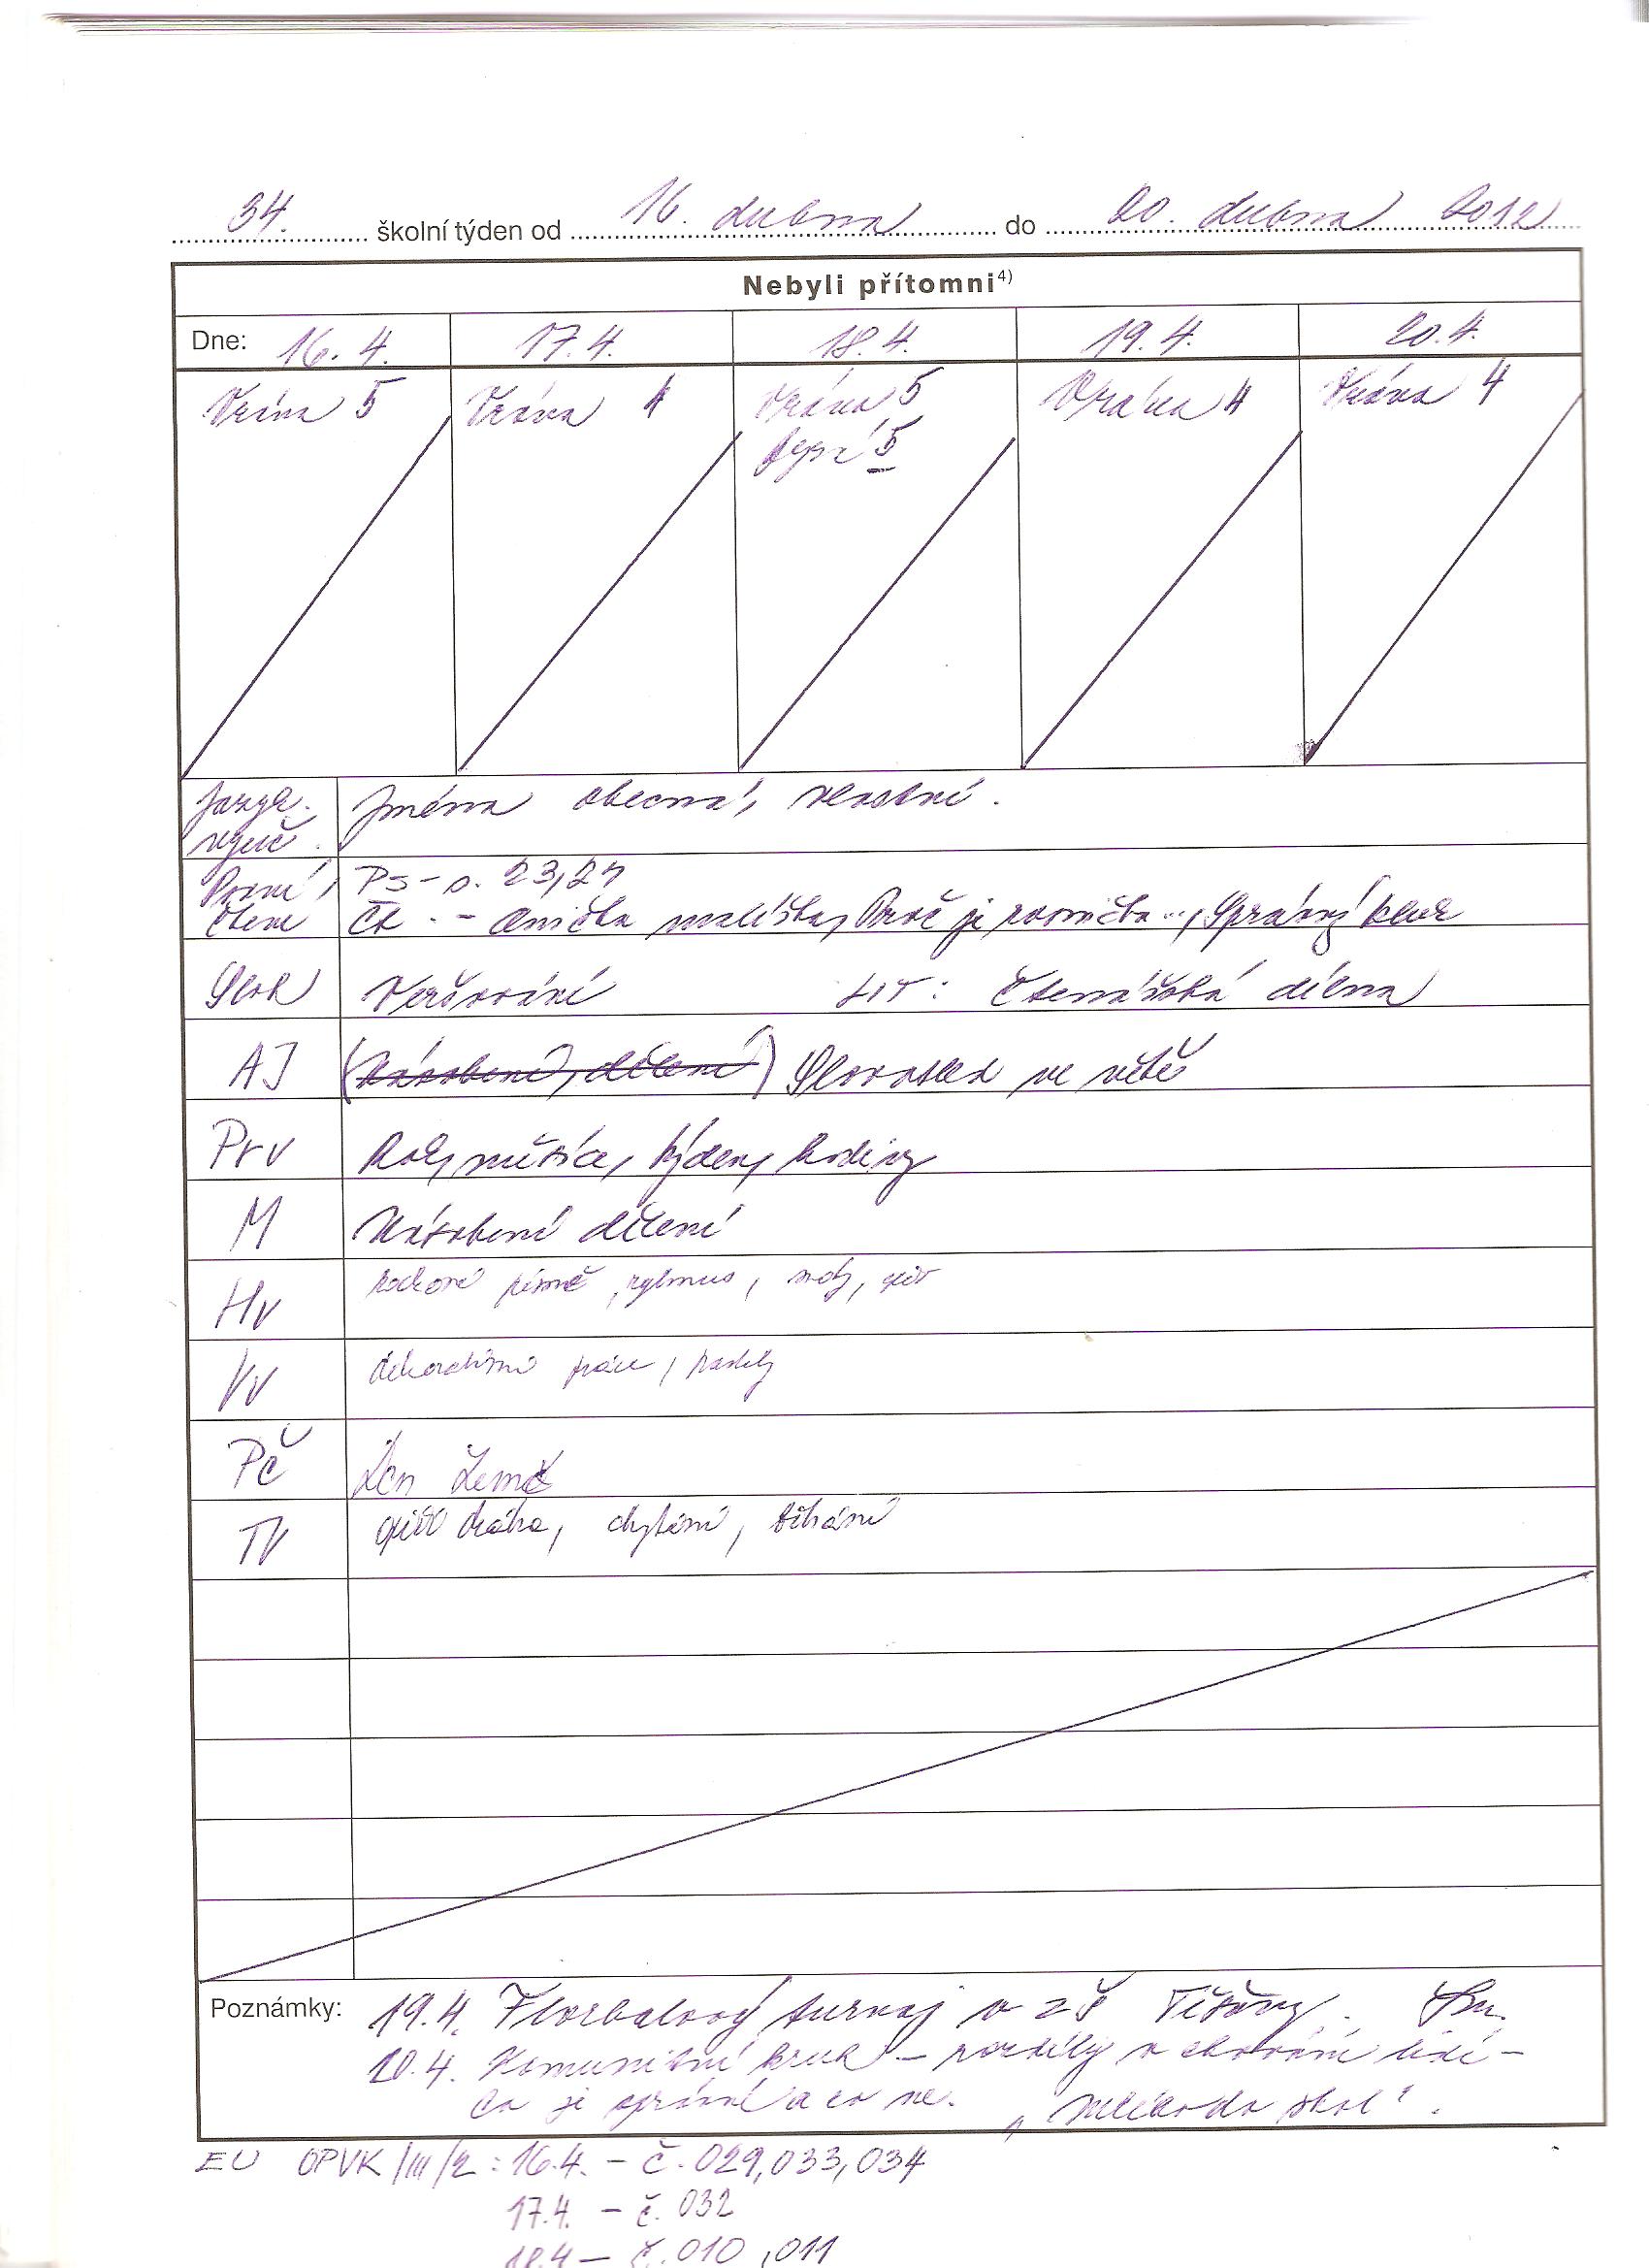 34. školní týden od 16. dubna do 20. dubna 2012
Nebyli přítomni4)
Dne: 16.4. 17.4. 18.4. 19.4. 20.4.
Vrána 5 Vrána 4 Vrána 5 Vrána 4 Vrána 4
5
Jazyk.
vyuč.
Jména obecná, vlastní.
Psaní,
čtení
PS - s. 23,24
Čt. - Anička malířka, Proč je rovnička..., Správný kluk
Sloh Veršování LIT: čtenářská dílna
AJ (Násobení, dělení) Slovosled ve větě
Prv Roky, měsíce, týdny, hodiny
M Násobení dělení
Hv rytmus, noty, zpěv
Vv dekorativní práce, pastely
Pč Den Země
TV opičí dráha, chytání, běhání
Poznámky: 19.4. Florbalový turnaj v ZŠ Těšany.
20.4. Komunitní kruh - rozdíly v chování lidí -
co je správné a co ne. „Mléko do škol“.
EU OPVK/III/2: 16.4. - č. 029,033,034
17.4. - č. 032
18.4 - č. 010,011